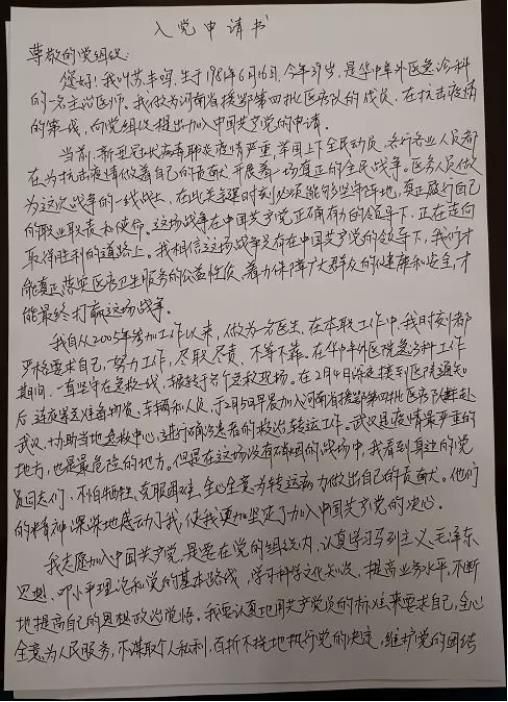 入党申请书
尊敬的党组织:
您好!我叫苏丰鸣,生于1981年6月16日,今年39岁,是华中阜外医院急诊科
的一名主治医师。我做为河南省援鄂第四批医疗队的成员,在抗击疫情
的第一线,向党组织提出加入中国共产党的申请。
当前,新型冠状病毒肺炎疫情严重,举国上下全民动员,各行各业人员都
在为抗击疫情做着自己的贡献,开展着一场真正的全民战争。医务人员做
为这次战争的一线战士,在此关键时刻必须能够坚守阵地,真正履行自己
的职业职责和使命。这场战争在中国共产党正确有力的领导下,正在走向
取得胜利的道路上。我相信这场战争只有在中国共产党的领导下,我们才
能真正落实医疗卫生服务的公益性质,着力保障广大群众的健康和安全,才
能最终打赢这场战争。
我自从2005年参加工作以来,做为一名医生,在本职工作中,我时刻都
严格要求自己,努力工作,尽职尽责,不等不靠。在华中阜外医院急诊科工作
期间,一直坚守在急救一线,辗转于各个急救现场。在2月4日深夜接到医院通知
后,连夜紧急准备物资、车辆和人员,于2月5日早晨加入河南省援鄂第四批医疗队奔赴
武汉,协助当地急救中心,进行确诊患者的救治转运工作。武汉是疫情最严重的
地方,也是最危险的地方。但是在这场没有硝烟的战场中,我看到身边的党
员同志们,不怕牺牲,克服困难,全心全意为转运病人做出自己的贡献。他们
的精神深深地感动了我,使我更加坚定了加入中国共产党的决心。
我志愿加入中国共产党,是要在党的组织内,认真学习马列主义、毛泽东
思想、邓小平理论和党的基本路线,学习科学文化知识,提高业务水平,不断
地提高自己的思想政治觉悟。我要认真地用共产党员的标准来要求自己,全心
全意为人民服务,不谋取个人私利,百折不挠地执行党的决定,维护党的团结